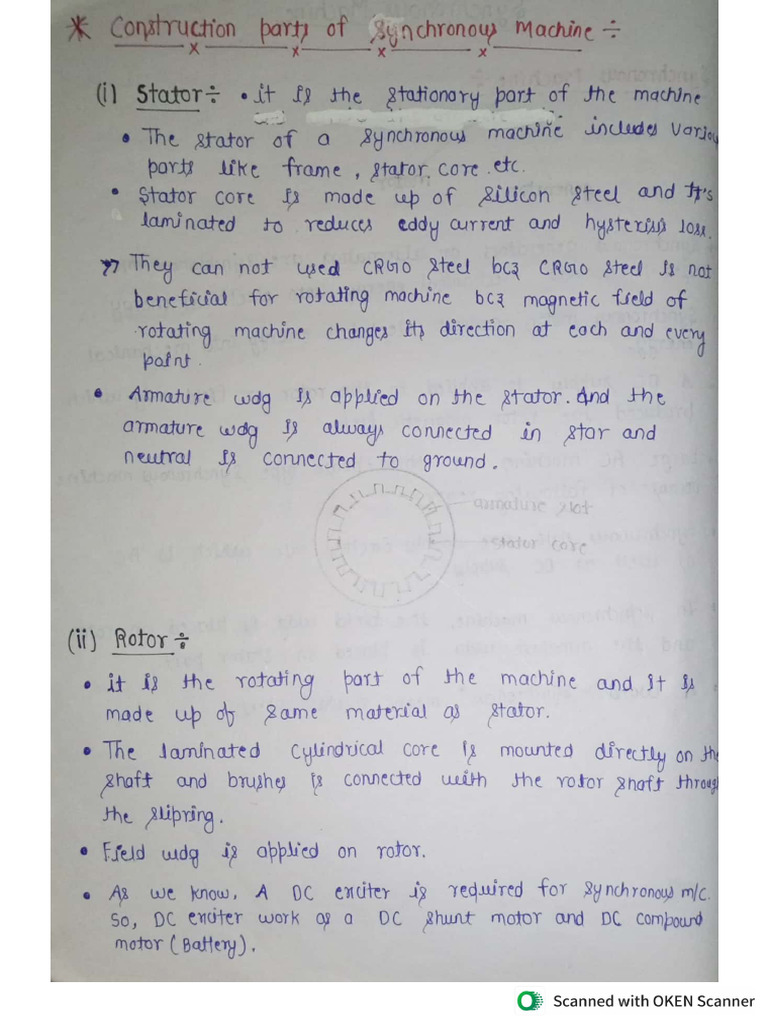 * Construction parts of Synchronous Machine ÷
(i) Stator ÷ • it is the stationary part of the machine
• The stator of a synchronous machine includes various
parts like frame, stator core etc.
• Stator core is made up of silicon steel and It's
laminated to reduces eddy current and hysterisis loss.
They can not used CRGO steel bcz CRGO steel is not
beneficial for rotating machine bcz magnetic field of
rotating machine changes its direction at each and every
point.
• Armature wdg is applied on the stator. And the
armature wdg is always connected in star and
neutral is connected to ground.
armature slot
stator core
(ii) Rotor ÷
• it is the rotating part of the machine and it is
made up of same material as stator.
• The laminated cylindrical core is mounted directly on the
shaft and brushes is connected with the rotor shaft through
the slipring.
• Field wdg is applied on rotor.
• As we know, A DC exciter is required for synchronous m/c.
So, DC exciter work as a DC shunt motor and DC compound
motor (Battery).
Scanned with OKEN Scanner